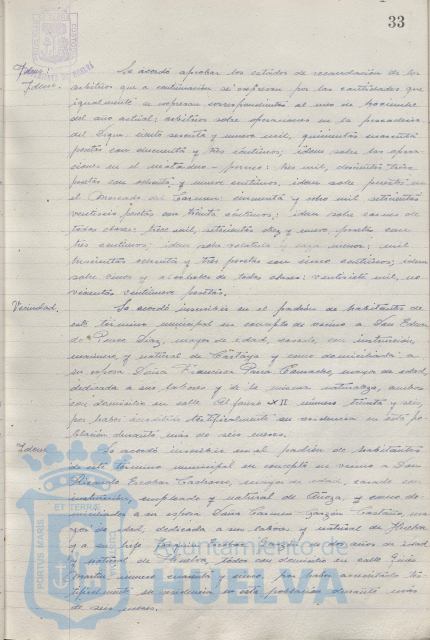 33
Idem.
Idem.
Se acordó aprobar los estados de recaudación de los
arbitrios que a continuación se expresan por las cantidades que
igualmente se expresan correspondientes al mes de Noviembre
del año actual; arbitrios sobre operaciones en la pescadería
del Dique: ciento sesenta y nueve mil, quinientas
pesetas con cincuenta y tres céntimos; idem sobre las opera-
ciones en el matadero: tres mil, doscientas
pesetas con ochenta y nueve céntimos, idem sobre puestos en
el Mercado del Carmen: cincuenta y ocho mil setecientas
veintiseis pesetas con treinta céntimos; idem sobre carnes de
todas clases: trece mil, setecientas diez y nueve pesetas con
tres céntimos; idem sobre volatería y caza menor: mil
trescientas cuarenta y tres pesetas con cinco céntimos; idem
sobre vinos y alcoholes de todas clases: veintisiete mil, no-
vecientas veintinueve pesetas.
Vecindad.
Se acordó inscribir en el padrón de habitantes de
este término municipal en concepto de vecino a Don Eduar-
do Ponce Díaz, mayor de edad, casado, con instrucción,
marinero y natural de Cartaya y como domiciliada a
su esposa Doña Francisca Parra Camacho, mayor de edad,
dedicada a sus labores y de la misma naturaleza, ambos
con domicilio en calle Alfonso XII número treinta y seis,
por haber acreditado testificalmente su residencia en esta po-
blación durante más de seis meses.
Idem
Se acordó inscribir en el padrón de habitantes
de este término municipal en concepto de vecino a Don
Ricardo Escobar, mayor de edad, casado, con
instrucción, empleado y natural de y como do-
miciliados a su esposa Doña Carmen Garzón, ma-
yor de edad, dedicada a sus labores y natural de Huelva
y a su hijo Joaquín Escobar Garzón, de dos años de edad
y natural de Huelva, todos con domicilio en calle
número cuarenta y cinco, por haber acreditado tes-
tificalmente su residencia en esta población durante más
de seis meses.
PORTUS MARIS ET TERRAE CUSTODIA
Ayuntamiento de
HUELVA